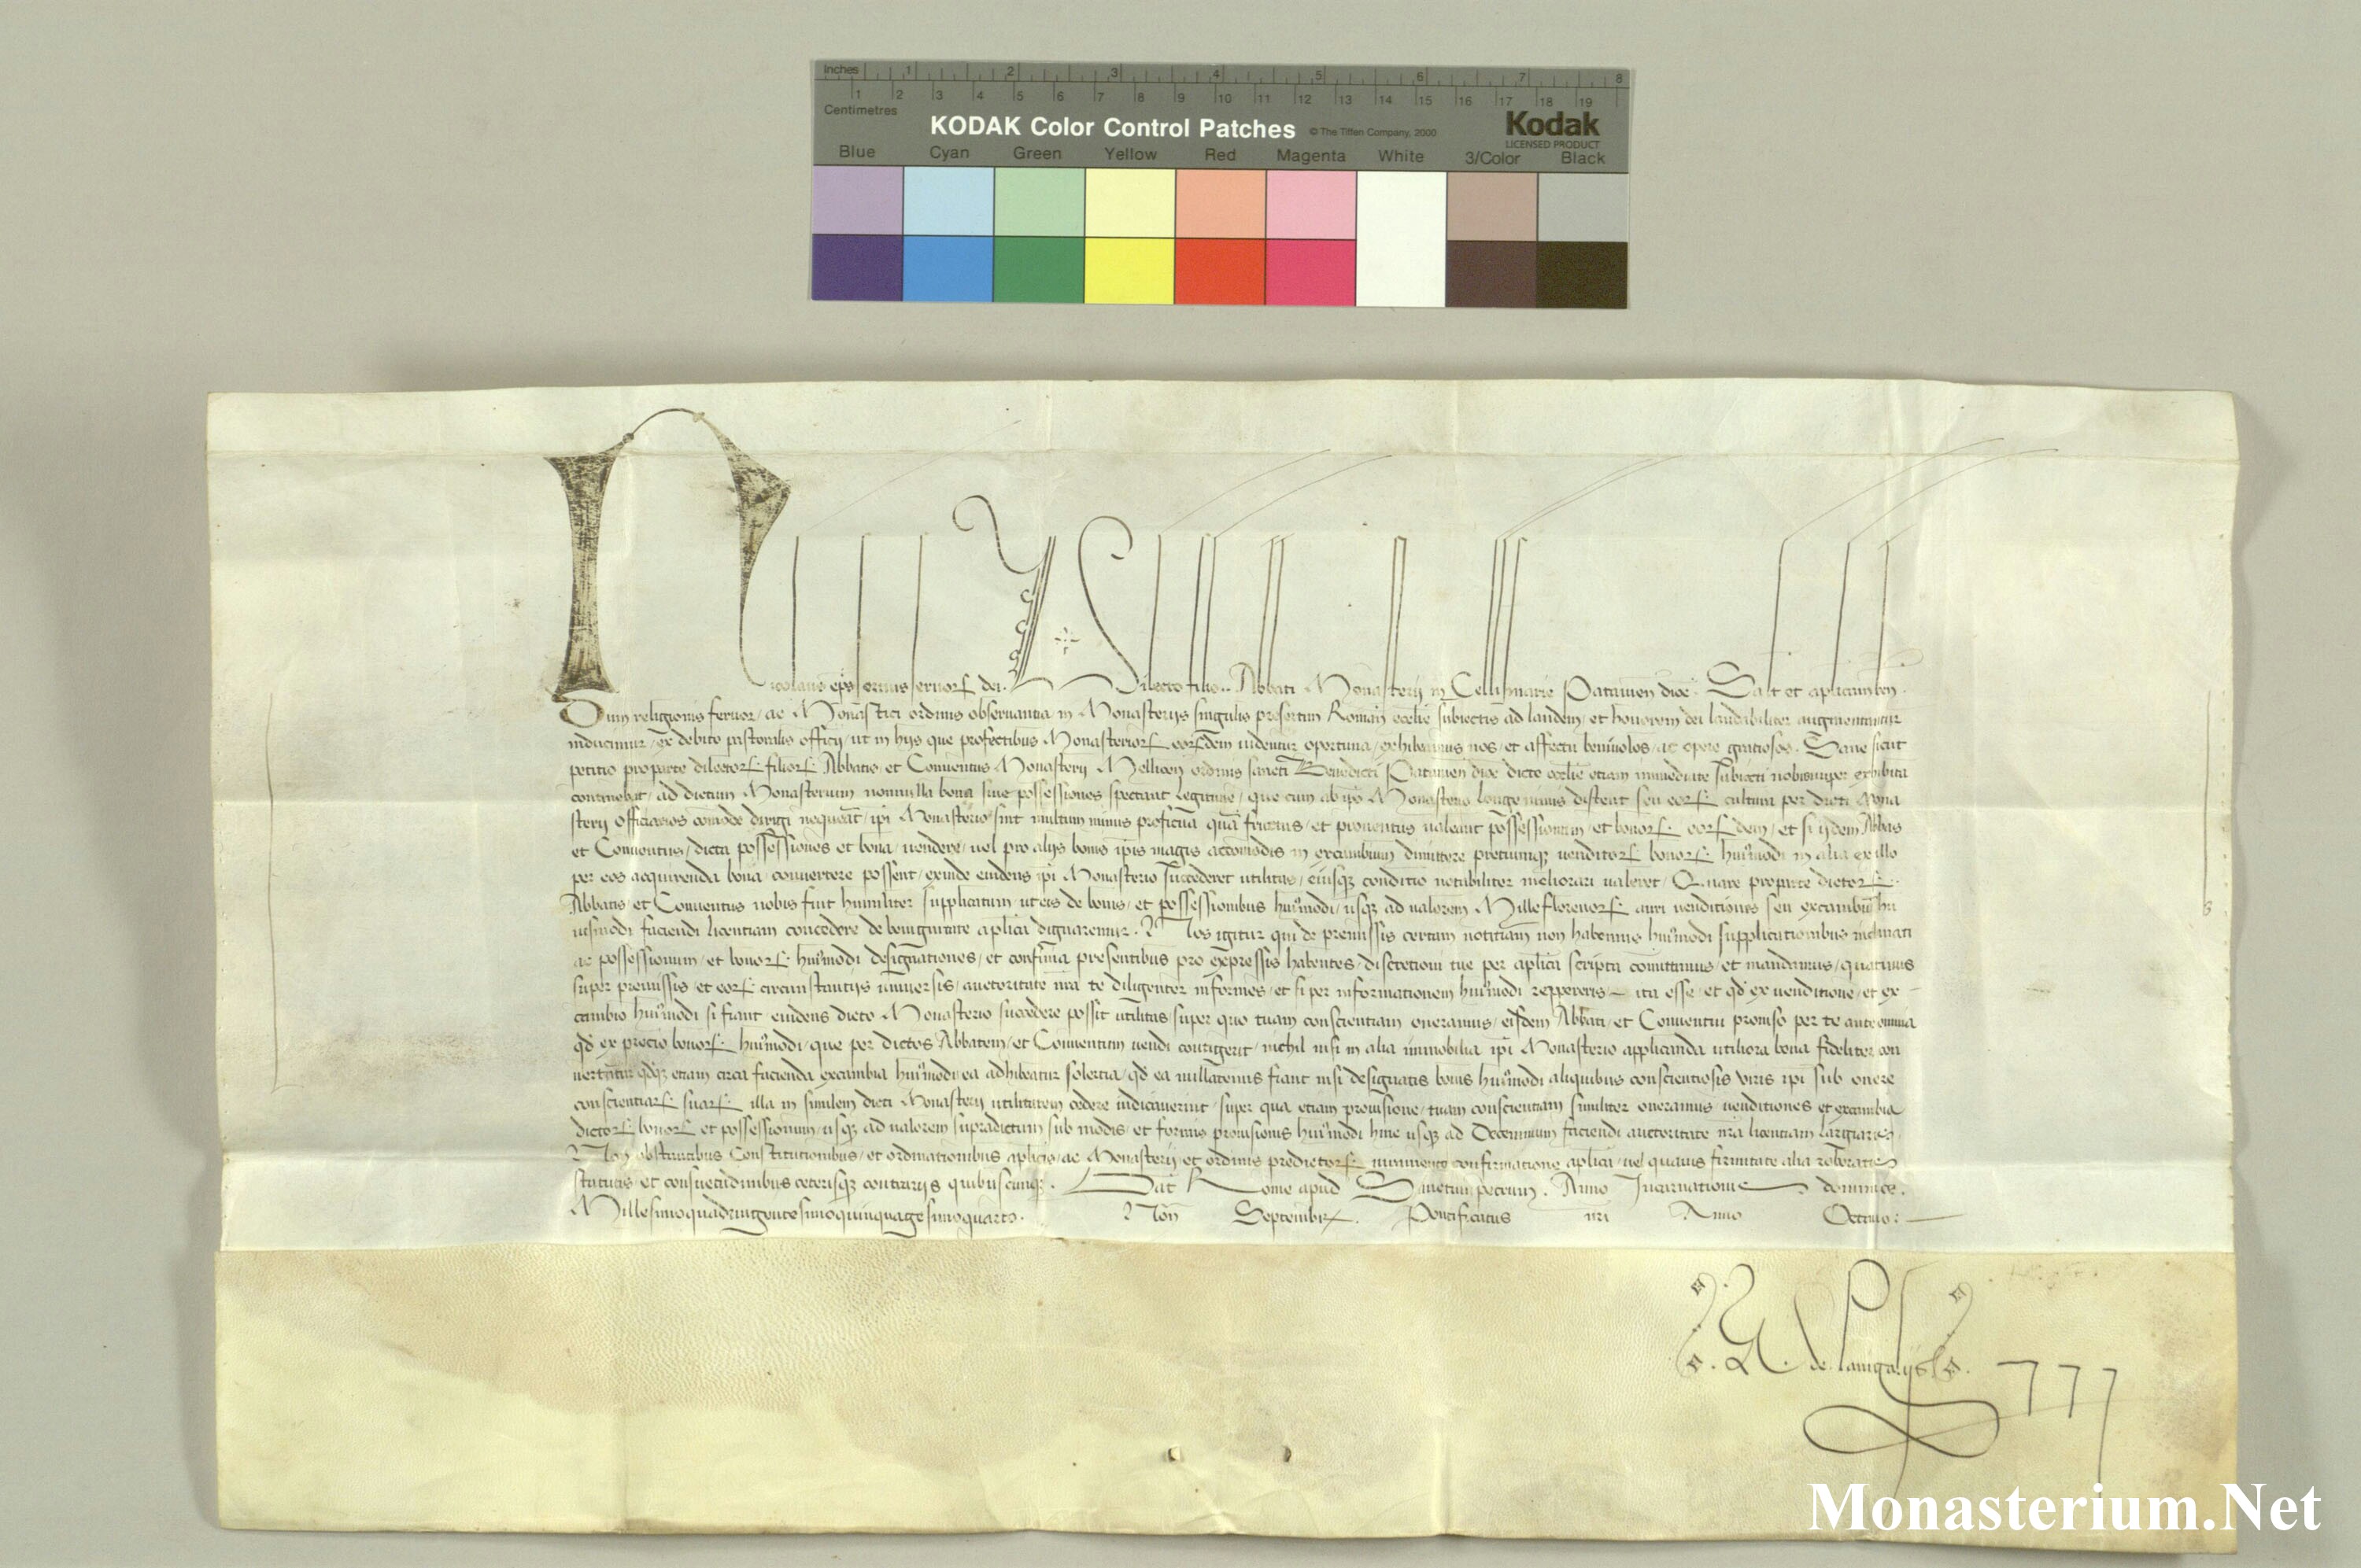 Inches 1 2 3 4 5 6 7 8
1 2 3 4 5 6 7 8 9 10 11 12 13 14 15 16 17 18 19
Centimetres
KODAK Color Control Patches © The Tiffen Company, 2000 Kodak
LICENSED PRODUCT
Blue Cyan Green Yellow Red Magenta White 3/Color Black
Nicolaus eps servus servorꝝ dei. Dilecto filio .. Abbati Monasterii in Cellismarie Patauien dioc. Salt et aplicam ben.
Dum religionis feruor, ac Monastici ordinis obseruantia in Monasterijs singulis presertim Roman ecclie subiectis ad laudem, et honorem dei laudabiliter augmentantur
inducimur, ex debito pastoralis officij, ut in hijs que profectibus Monasteriorꝝ eorꝝdem uidentur oportuna, exhibeamus nos, et affectu beniuolos, ac opere gratiosos. Sane sicut
petitio pro parte dilectorꝝ filiorꝝ Abbatis, et Conuentus Monasterij Mellicen ordinis sancti Benedicti Patauien dioc dicte ecclie etiam immediate subiecti nobis nuper exhibita
continebat, ad dictum Monasterium nonnulla bona siue possessiones spectant legitime, que cum ab ipo Monasterio longe nimis distent seu eorꝝ cultura per dicti Mona
sterij Officiarios comode dirigi nequeat, ipi Monasterio sint multum minus proficua quam fructus, et prouentus ualeant possessionum, et bonorꝝ eorꝝdem, et si ijdem Abbas
et Conuentus, dicta possessiones et bona, uendere, uel pro alijs bonis ipis magis accomodis in excambium dimittere pretiumqꝫ uenditorꝝ bonorꝝ humodi in alia ex illo
per eos acquirenda bona, conuertere possent, exinde euidens ipi Monasterio succederet utilitas, eiusqꝫ conditio notabiliter meliorari ualeret, Quare pro parte dictorꝝ
Abbatis, et Conuentus nobis fuit humiliter supplicatum ut eis de bonis, et possessionibus humodi, usqꝫ ad ualorem Mille florenorꝝ auri uenditiones seu excambia hu
iusmodi faciendi licentiam concedere de benignitate aplica dignaremur. Nos igitur qui de premissis certam notitiam non habemus humodi supplicationibus inclinati
ac possessionum, et bonorꝝ humodi designationes, et confinia presentibus pro expressis habentes, discretioni tue per aplica scripta comittimus, et mandamus, quatinus
super premissis, et eorꝝ circunstantijs uniuersis, auctoritate nra te diligenter informes, et si per informationem humodi reppereris ita esse, et qd ex uenditione, et ex
cambio humodi si fiant euidens dicto Monasterio succedere possit utilitas, super quo tuam conscientiam oneramus, eisdem Abbati, et Conuentui prouiso per te ante omnia
qd ex precio bonorꝝ humodi, que per dictos Abbatem, et Conuentum uendi contigerit, nichil nisi in alia immobilia ipi Monasterio applicanda utiliora bona fideliter con
uertatur qdqꝫ etiam circa facienda excambia humodi ea adhibeatur solertia, qd ea nullatenus fiant nisi designatis bonis humodi aliquibus conscientiosis viris ipi sub onere
conscientiarꝝ suarꝝ illa in similem dicti Monasterij utilitatem cedere iudicauerint, super qua etiam prouisione, tuam conscientiam similiter oneramus uenditiones et excambia
dictorꝝ bonorꝝ et possessionum, usqꝫ ad ualorem supradictum sub modis, et formis prouisionis humodi hinc usqꝫ ad Decennium faciendi auctoritate nra licentiam largiaris,
Non obstantibus Constitutionibus, et ordinationibus aplicis, ac Monasterij, et ordinis predictorꝝ iuramento confirmatione aplica, uel quauis firmitate alia roboratis
statutis, et consuetudinibus ceterisqꝫ contrarijs quibuscunqꝫ. Dat Rome apud Sanctum petrum. Anno Incarnationis dominice.
Millesimoquadringentesimoquinquagesimoquarto. Non Septembr. Pontificatus nri Anno Octauo.
de
777
Monasterium.Net